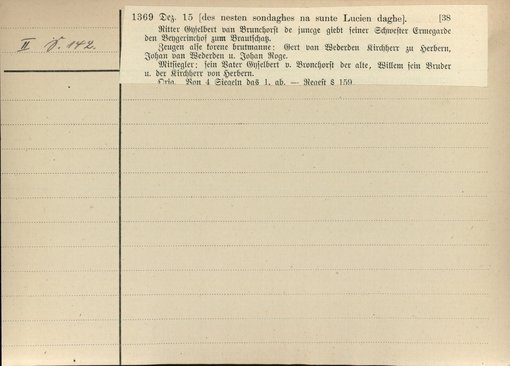 1369 Dez. 15 [des nesten sondaghes na sunte Lucien daghe]. [38
Ritter Gyselbert van Brunchorst de juncge giebt seiner Schwester Ermegarde
den Beygerinchof zum Brautschatz.
Zeugen alse korene brutmanne: Gert van Wederden Kirchherr zu Herbern,
Johan van Wederden u. Johan Roge.
Mitsiegler: sein Vater Gyselbert v. Bronchorst der alte, Willem sein Bruder
u. der Kirchherr von Herbern.
Orig. Von 4 Siegeln das 1. ab. — Regest S 159
II S. 142.